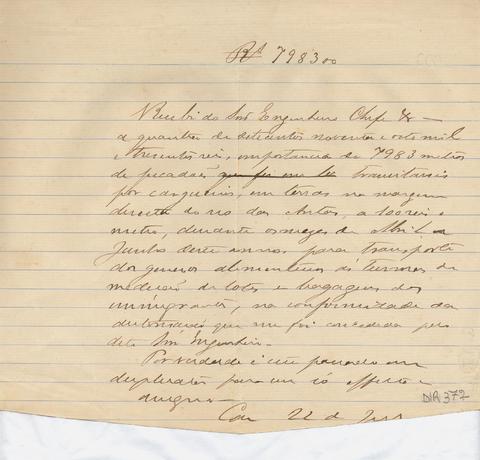 Rs 798300
Recebi do Snr Engenheiro Chefe &
a quantia de setecentos noventa e oito mil
e tresentos reis, importancia de 7983 metros
de picadas que fiz transitaveis
por cargueiros, em terras na margem
direita do rio das Antas, a 100 reis o
metro, durante os mezes de Abril a
Junho deste anno, para transporte
dos generos alimenticios ás turmas de
medição de lotes e bagagens dos
immigrantes, na conformidade da
autorisação que me foi concedida pelo
dito Snr Engenheiro.
Por verdade é este passado em
duplicata para um só effeito e
assigno
22 de
DIR 372